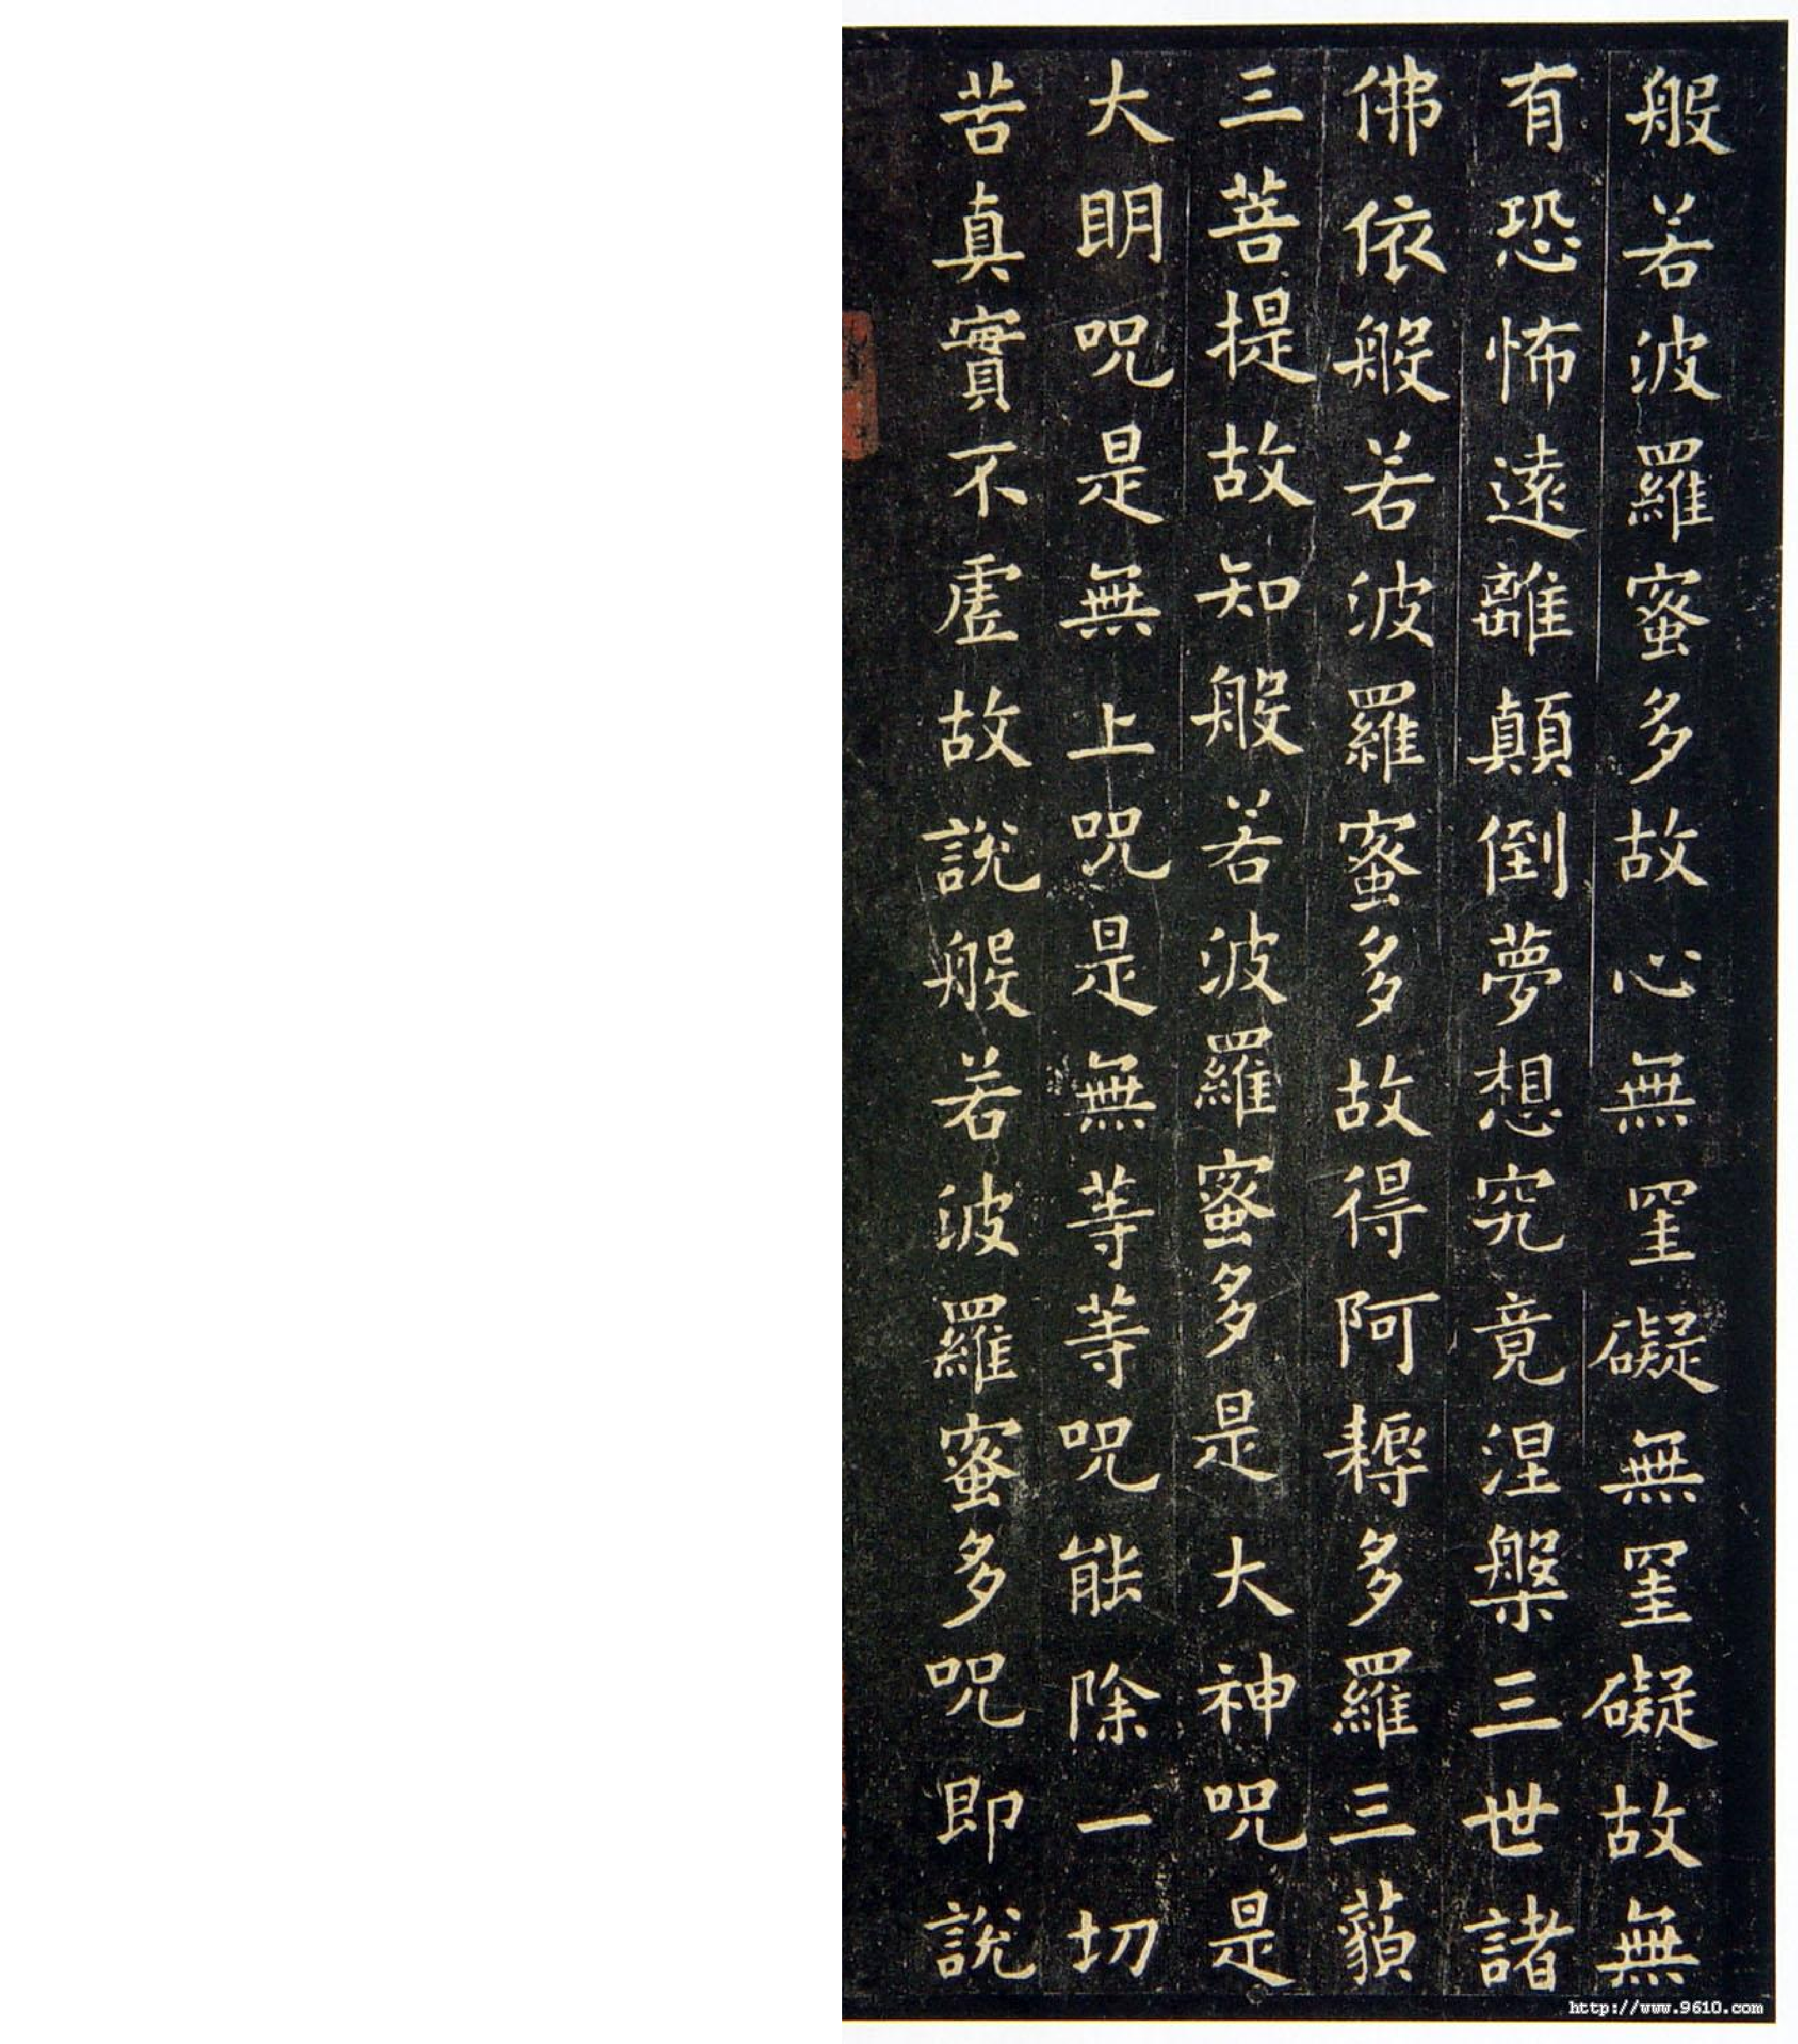 般若波羅蜜多故心無罣礙無罣礙故無
有恐怖遠離顛倒夢想究竟涅槃三世諸
佛依般若波羅蜜多故得阿耨多羅三藐
三菩提故知般若波羅蜜多是大神呪是
大明呪是無上呪是無等等呪能除一切
苦真實不虛故說般若波羅蜜多呪即說
http://www.9610.com